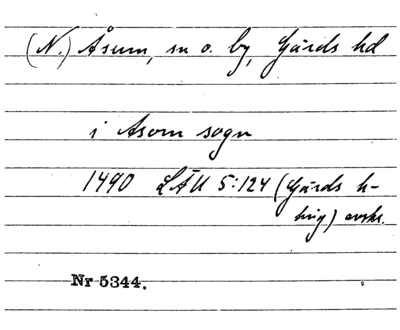 (N.) Åsum, sn o. by, Gärds hd
i Asom sogn
1490 LÄU 5:124 (Gärds h-
ting) avskr.
Nr 5344.